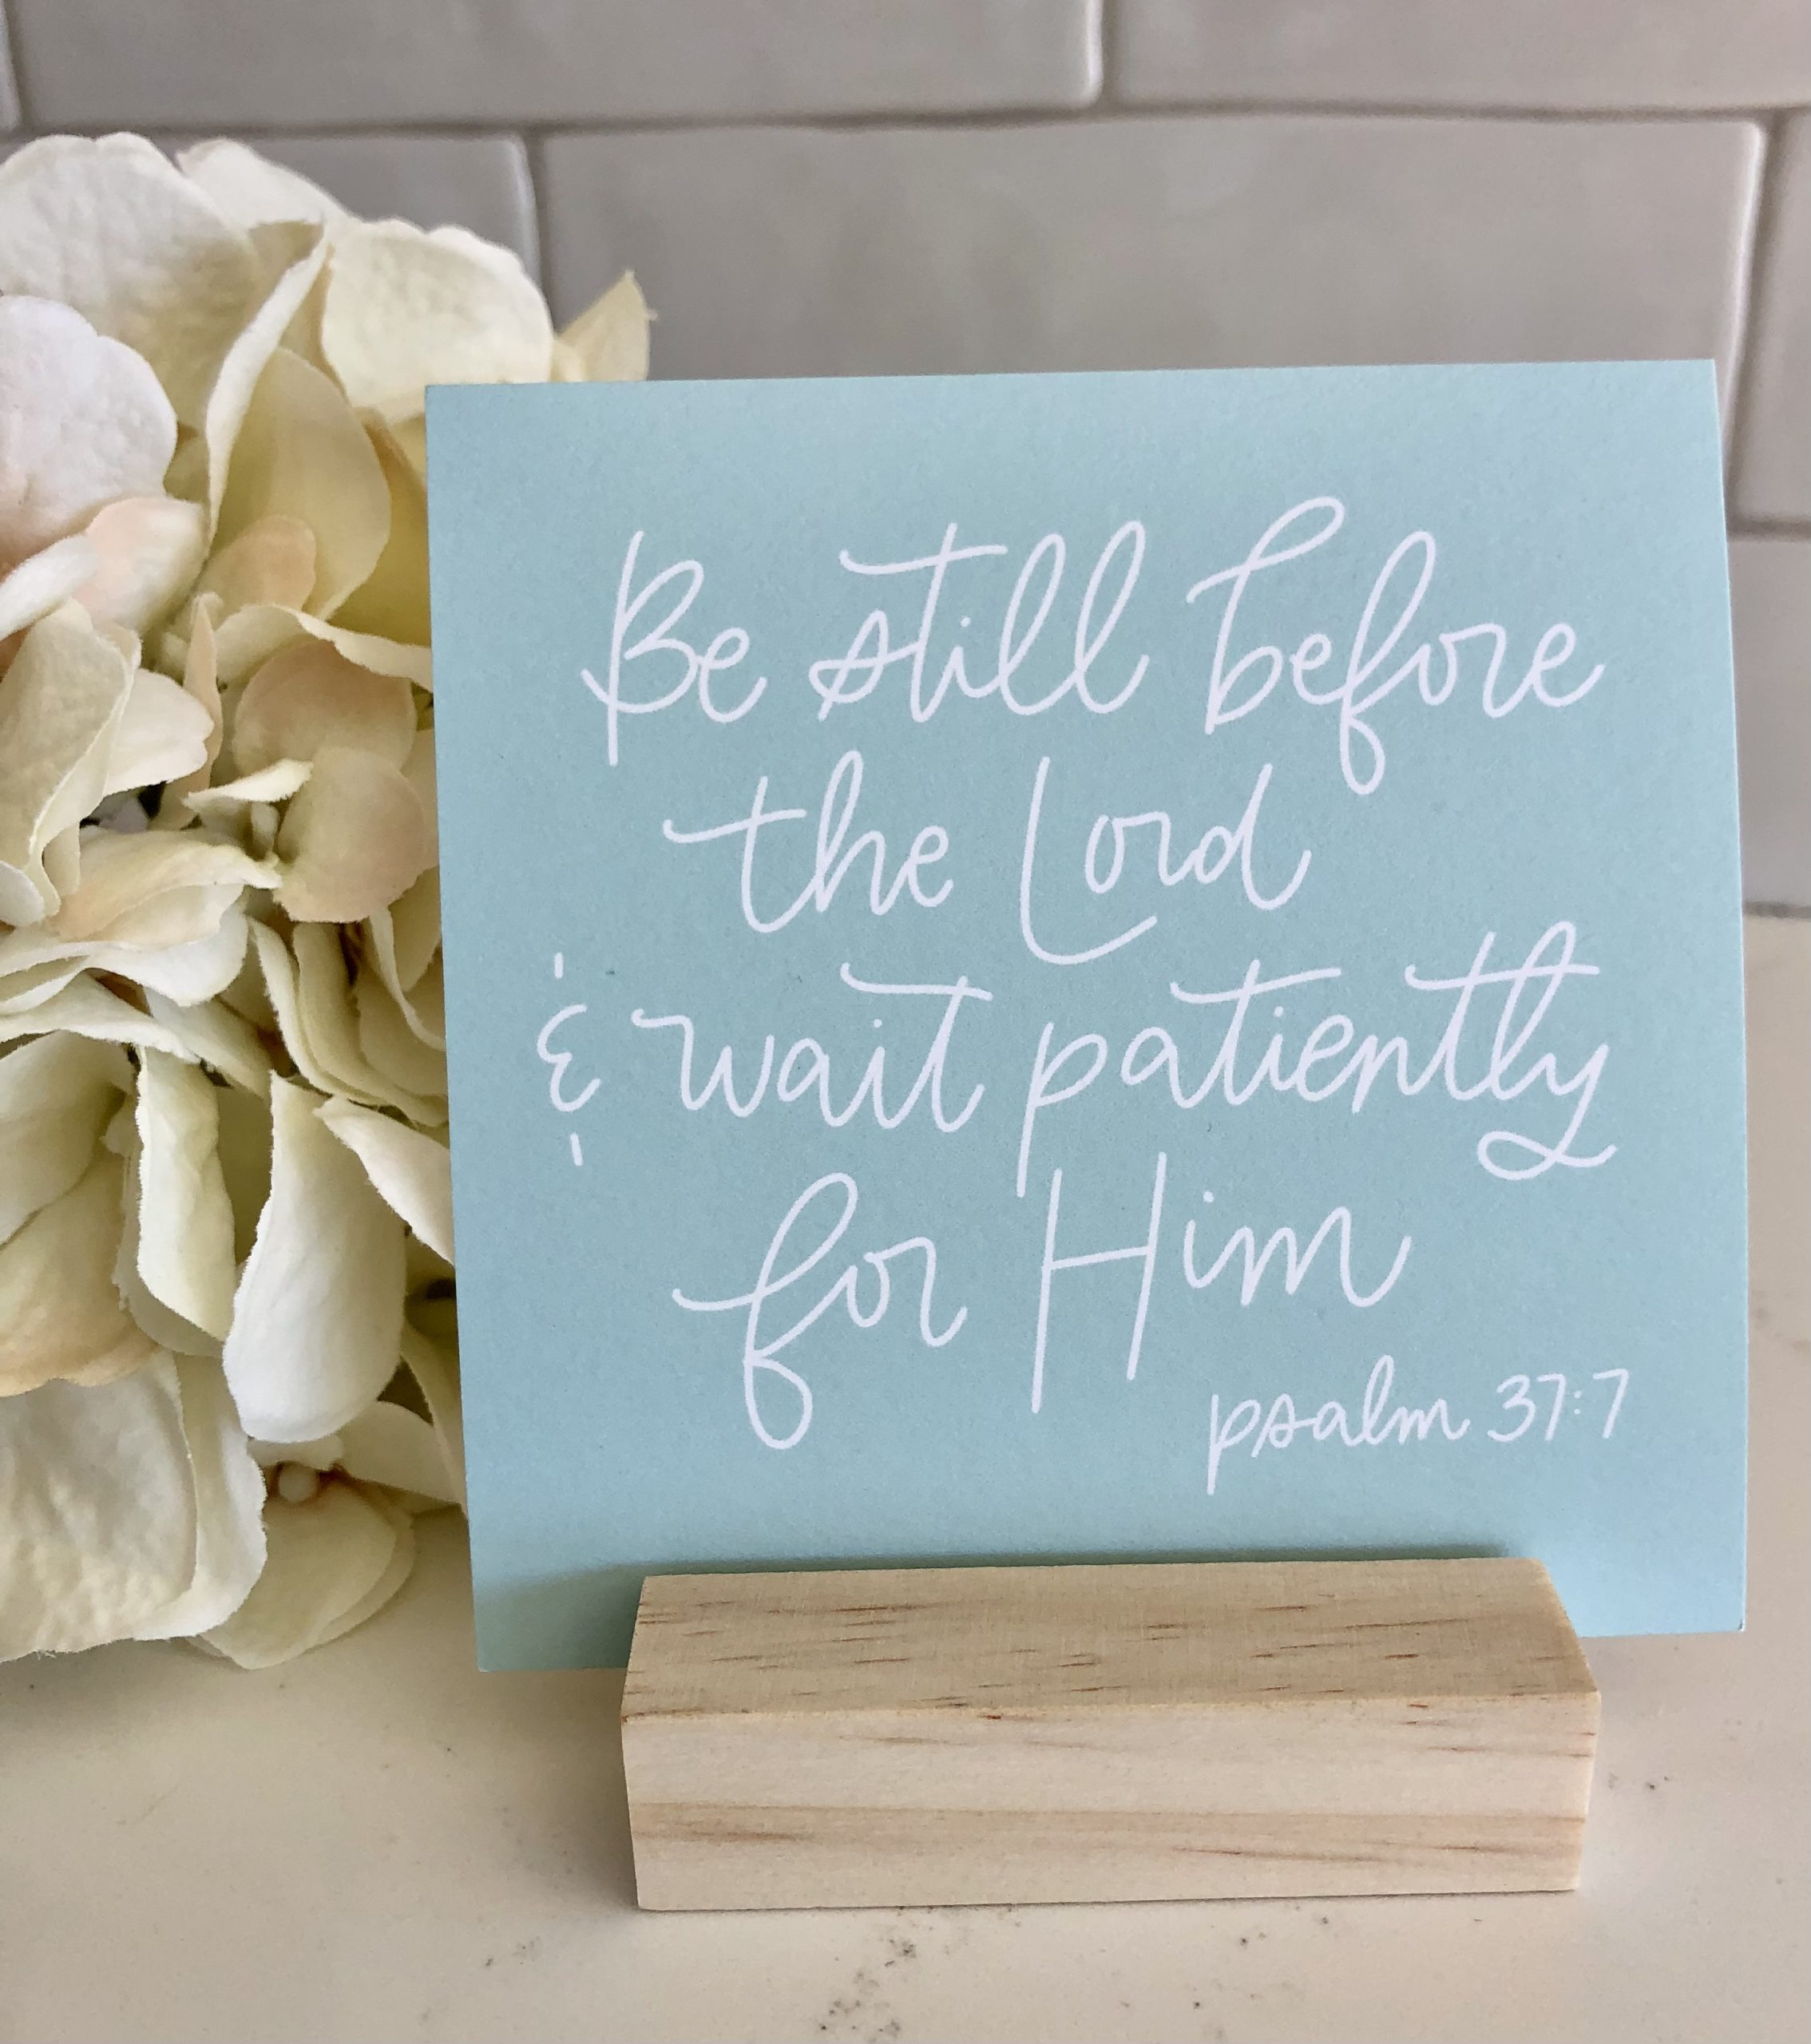 Be still before
the Lord
& wait patiently
for Him
psalm 37:7